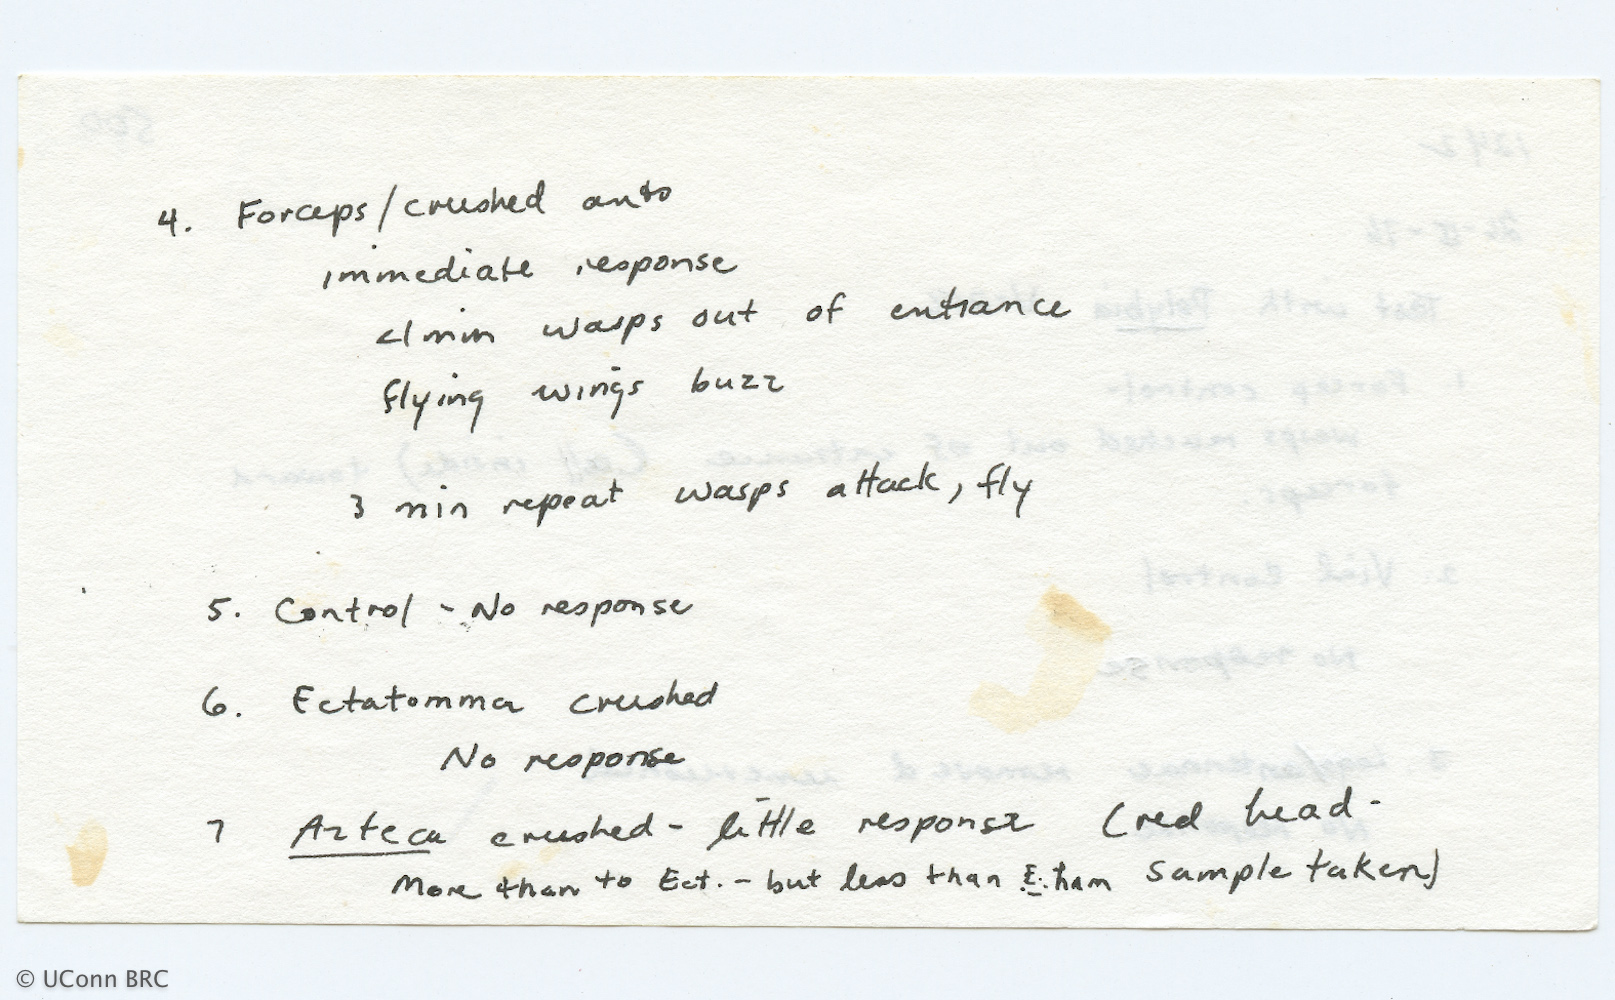 4. Forceps/crushed ants
immediate response
<1 min wasps out of entrance
flying wings buzz
3 min repeat wasps attack, fly
5. Control - No response
6. Ectatomma crushed
No response
7 Azteca crushed - little response (red head -
More than to Ect. - but less than E. ham sample taken)
© UConn BRC